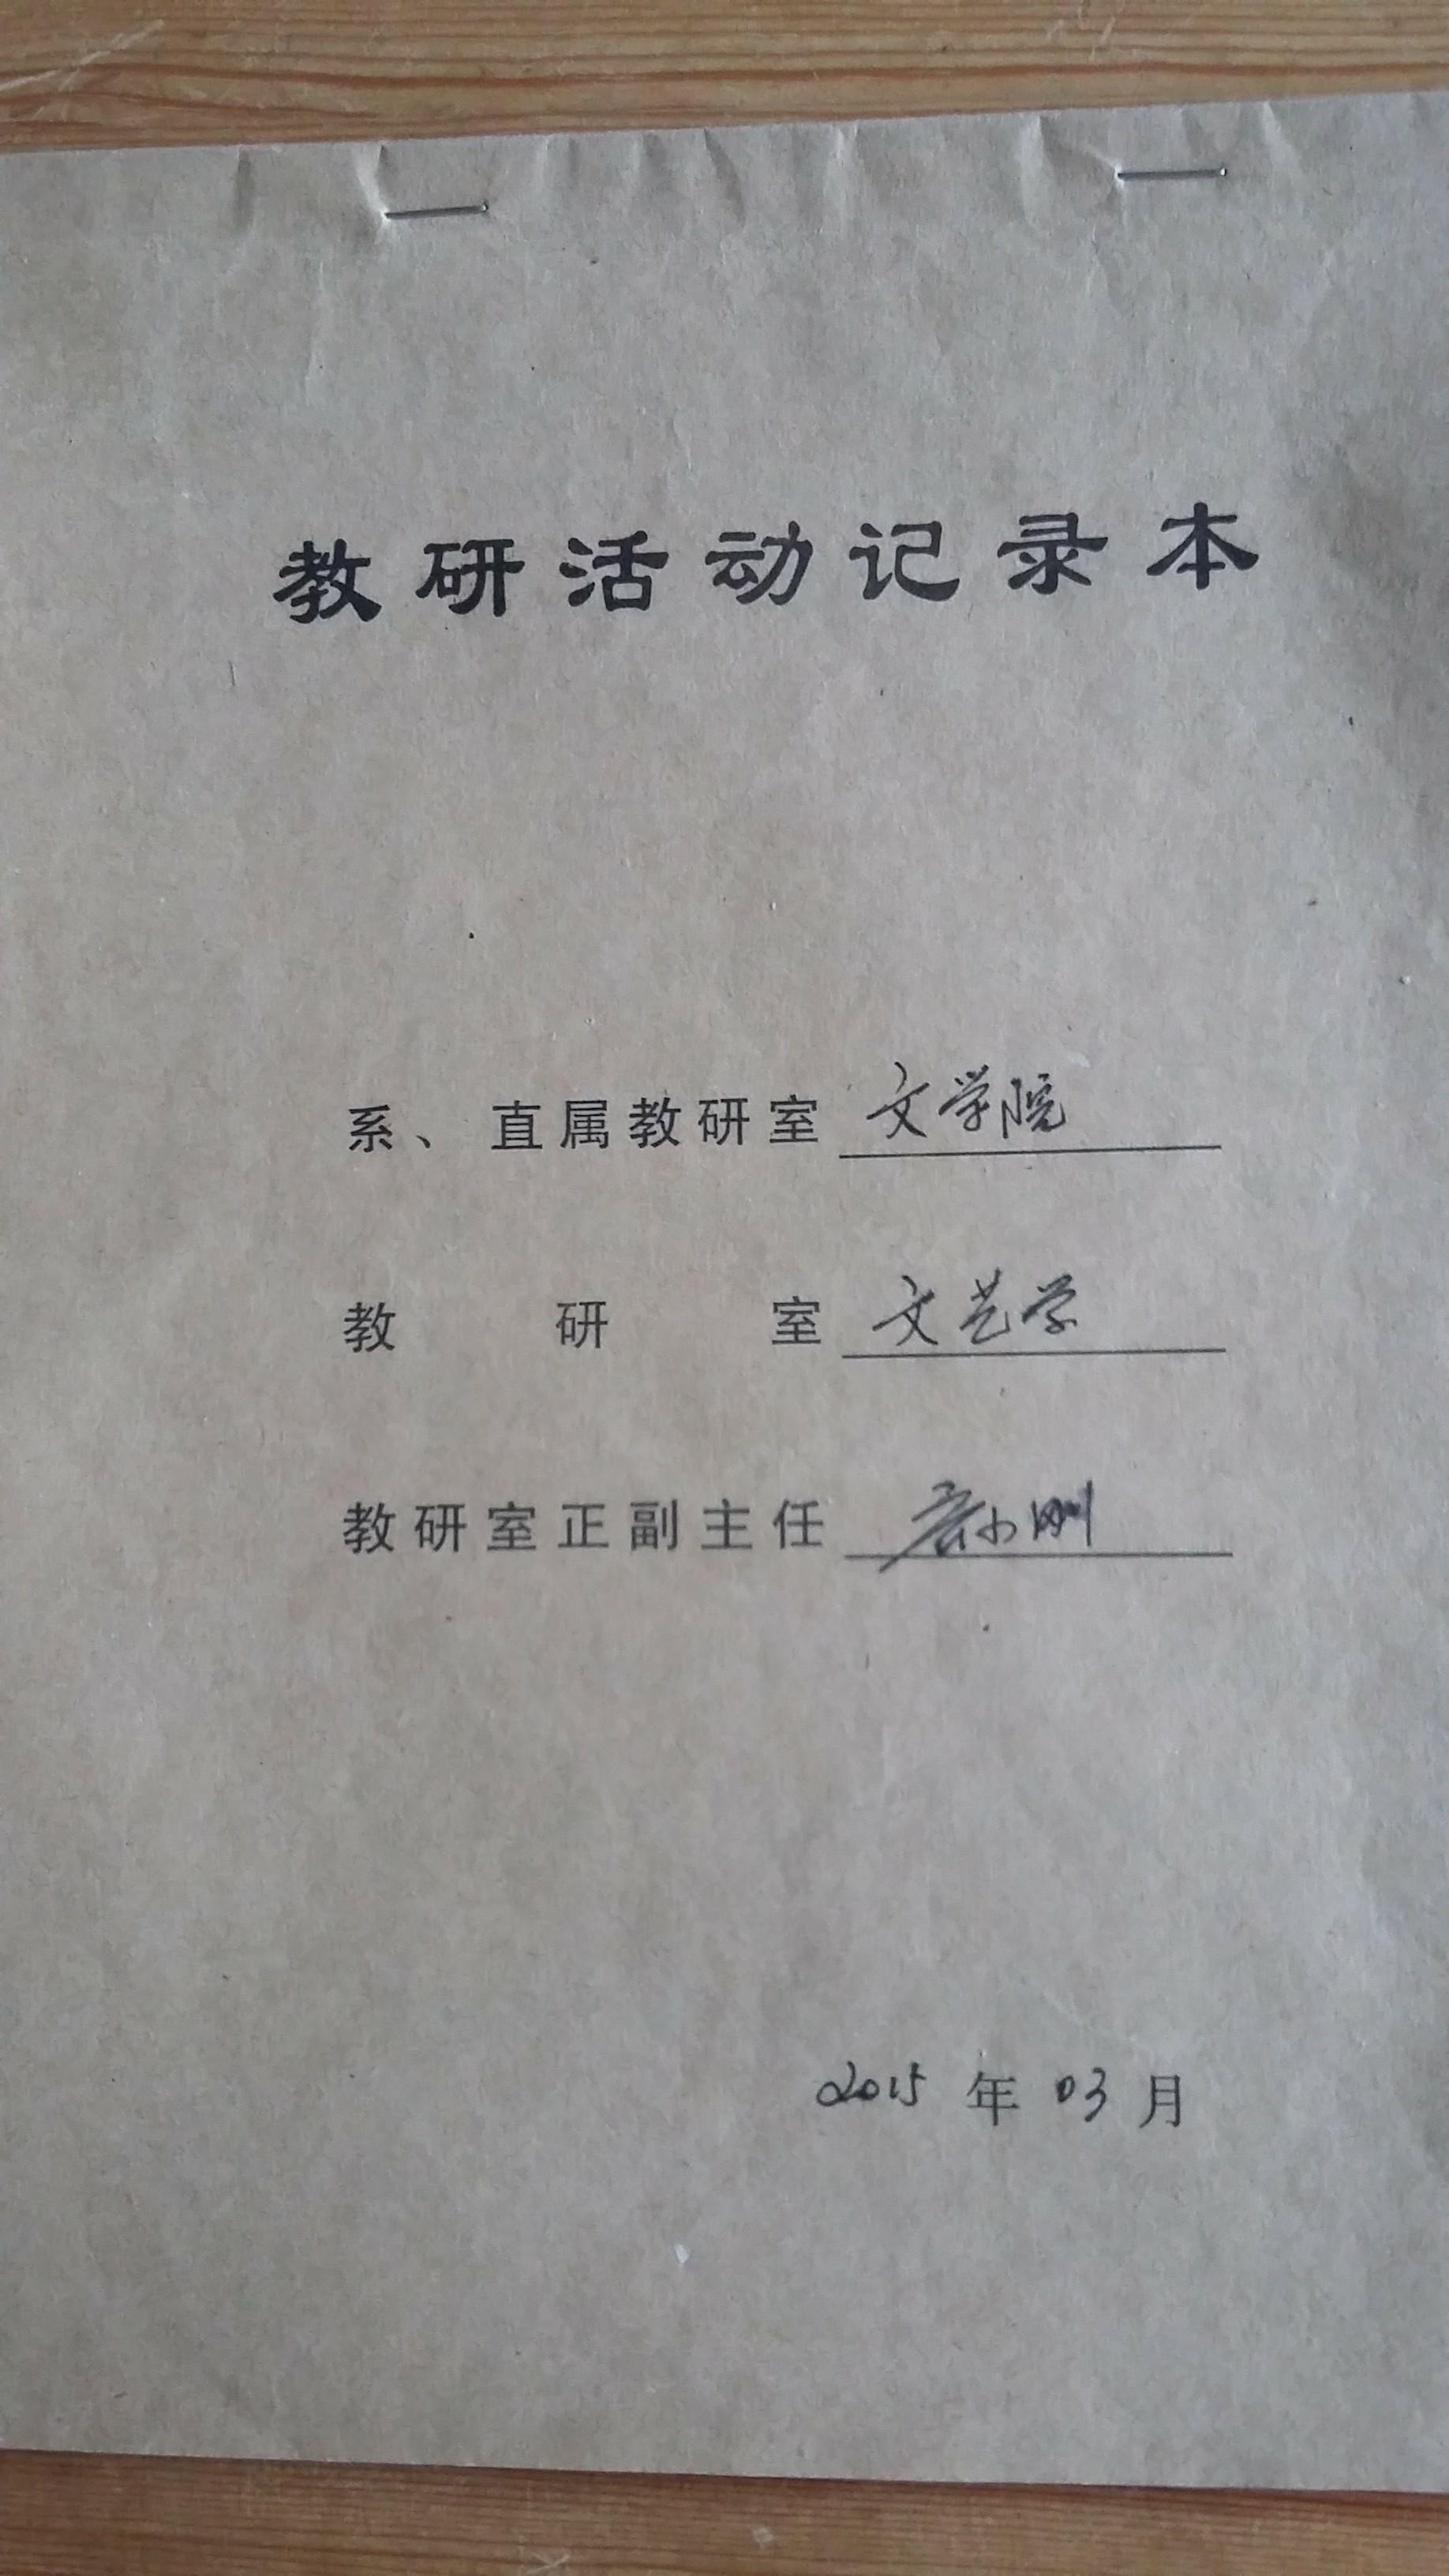 教研活动记录本
系、直属教研室 文学院
教研室 文艺学
教研室正副主任
2015 年 03 月